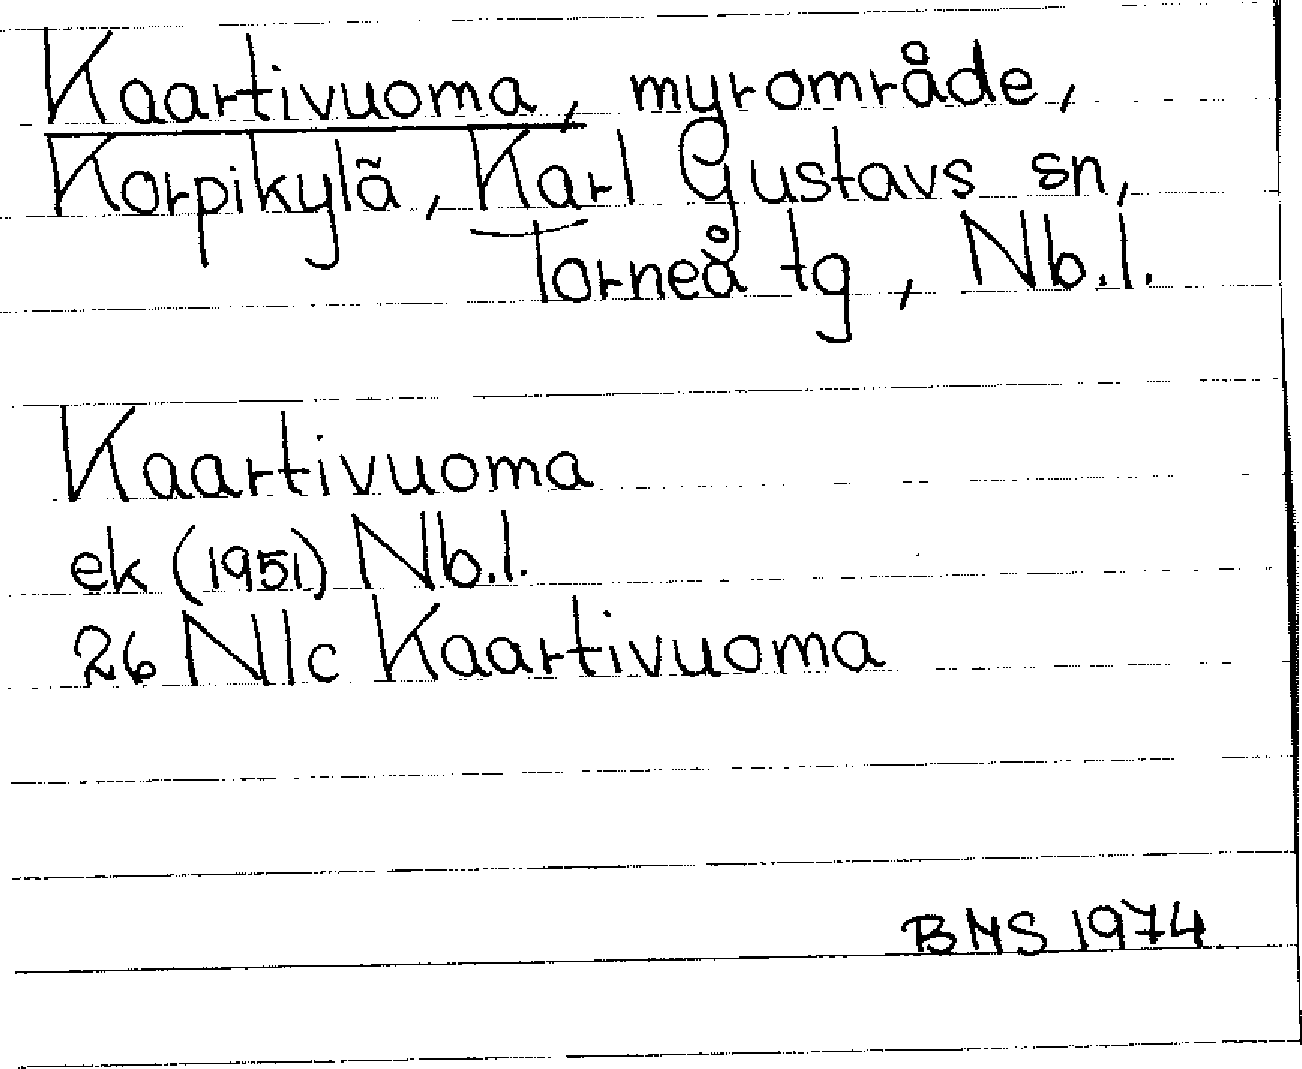 Kaartivuoma, myrområde,
Korpikylä, Karl Gustavs sn,
Torneå tg, Nb.l.
Kaartivuoma
ek (1951) Nb.l.
26 N/c Kaartivuoma
BMS 1974